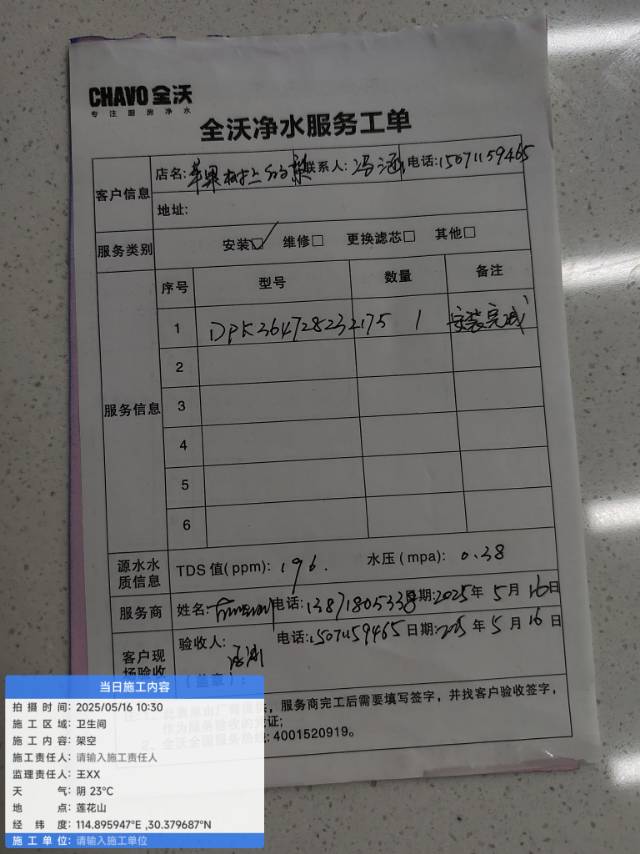 CHAVO 全沃
专注厨房净水
全沃净水服务工单
客户信息 店名: 苹果树上的 联系人: 冯涵 电话: 15071159465
地址:
服务类别 安装☑ 维修□ 更换滤芯□ 其他□
服务信息 序号 型号 数量 备注
1 DPK364728232175 1 安装完成
2
3
4
5
6
源水水质信息 TDS 值(ppm): 196. 水压(mpa): 0.38
服务商 姓名: 电话: 13871805338 日期: 2025年 5月 16日
客户现场验收 验收人: 电话: 15071159465 日期: 2025年 5月 16日
(盖章):
服务商完工后需要填写签字，并找客户验收签字，
4001520919。
当日施工内容
拍摄时间: 2025/05/16 10:30
施工区域: 卫生间
施工内容: 架空
施工责任人: 请输入施工责任人
监理责任人: 王XX
天气: 阴 23℃
地点: 莲花山
经纬度: 114.895947°E ,30.379687°N
施工单位: 请输入施工单位